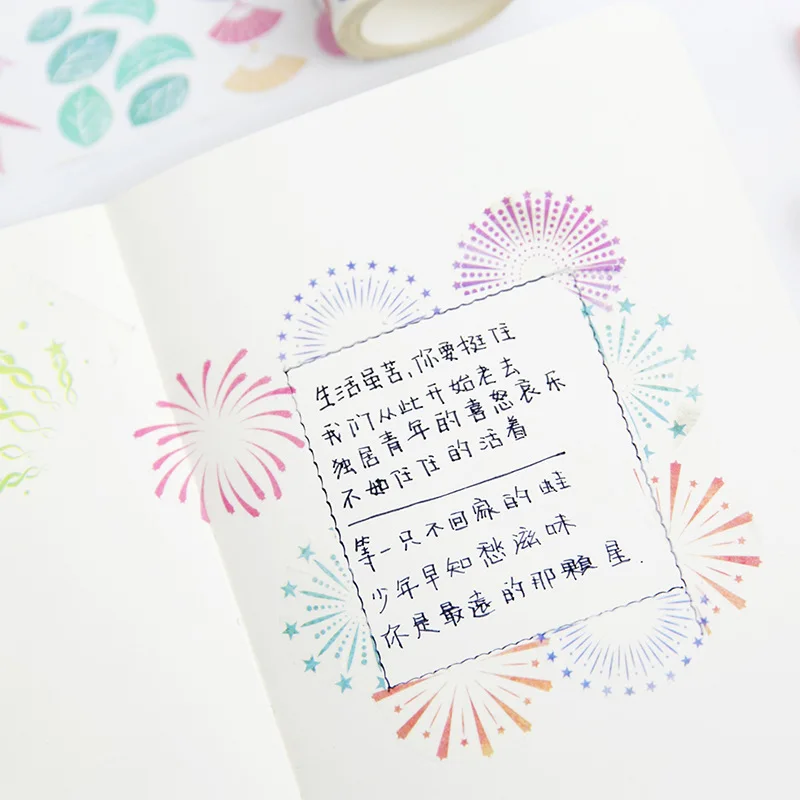 生活虽苦,你要挺住
我们从此开始老去
独居青年的喜怒哀乐
不如住住的活着
等一只不回家的蛙
少年早知愁滋味
你是最遠的那顆星.